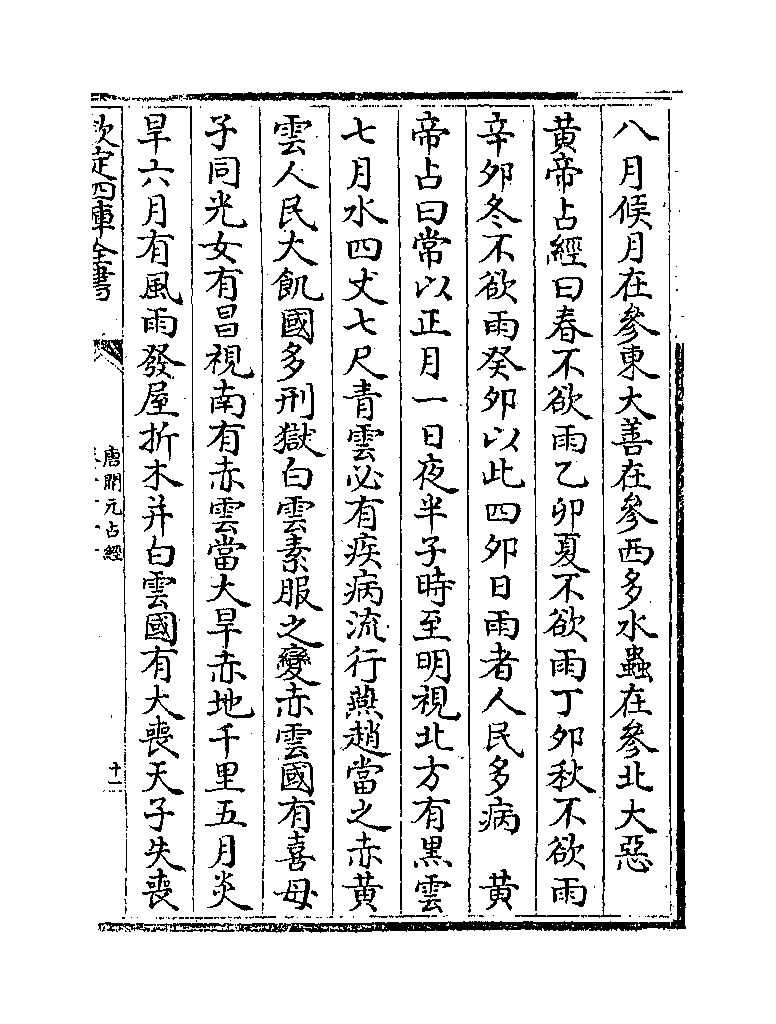 八月候月在參東大善在參西多水蟲在參北大惡
黄帝占經曰春不欲雨乙卯夏不欲雨丁卯秋不欲雨
辛卯冬不欲雨癸卯以此四卯日雨者人民多病　黄
帝占曰常以正月一日夜半子時至明視北方有黒雲
七月水四丈七尺青雲必有疾病流行燕趙當之赤黄
雲人民大飢國多刑獄白雲素服之變赤雲國有喜母
子同光女有昌視南有赤雲當大旱赤地千里五月炎
旱六月有風雨發屋折木并白雲國有大喪天子失喪
欽定四庫全書
唐開元占經
十一